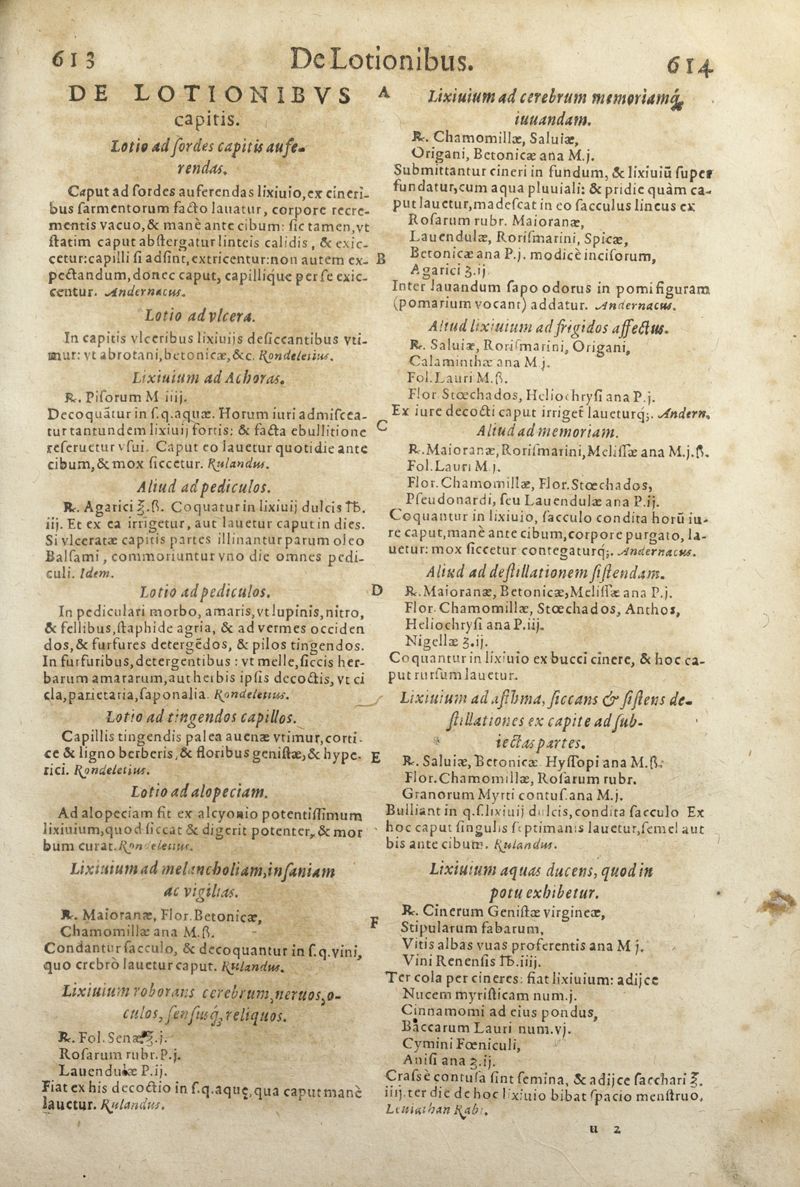 613
De Lotionibus.
614
DE LOTIONIBVS
capitis.
Lotio ad ſordes capitis aufe-
rendas.
Caput ad ſordes auferendas lixiuio, ex cineri-
bus ſarmentorum facto lauatur, corpore recre-
mentis vacuo, & manè ante cibum: ſic tamen, vt
ſtatim caput abſtergatur linteis calidis, & exic-
cetur: capilli ſi adſint, extricentur: non autem ex-
pectandum, donec caput, capillique per ſe exic-
centur. Andernacus.
Lotio ad vlcera.
In capitis vlceribus lixiuijs deſiccantibus vti-
mur: vt abrotani, betonicæ, &c. Rondeletius.
Lixiuium ad Achoras.
℞. Piſorum M iiij.
Decoquãtur in ſ.q. aquæ. Horum iuri admiſcea-
tur tantundem lixiuij fortis: & facta ebullitione
reſeruetur vſui. Caput eo lauetur quotidie ante
cibum, & mox ſiccetur. Rulandus.
Aliud ad pediculos.
℞. Agarici ℥.ß. Coquatur in lixiuij dulcis ℔.
iij. Et ex ea irrigetur, aut lauetur caput in dies.
Si vlceratæ capitis partes illinantur parum oleo
Balſami, commoriuntur vno die omnes pedi-
culi. Idem.
Lotio ad pediculos.
In pediculari morbo, amaris, vt lupinis, nitro,
& fellibus, ſtaphide agria, & ad vermes occiden
dos, & furfures detergẽdos, & pilos tingendos.
In furfuribus, detergentibus: vt melle, ſiccis her-
barum amararum, aut herbis ipſis decoctis, vt ci
cla, parietaria, ſaponalia. Rondeletius.
Lotio ad tingendos capillos.
Capillis tingendis palea auenæ vtimur, corti-
ce & ligno berberis, & floribus geniſtæ, & hype-
rici. Rondeletius.
Lotio ad alopeciam.
Ad alopeciam fit ex alcyonio potentiſſimum
lixiuium, quod ſiccat & digerit potenter, & mor
bum curat. Rondeletius.
Lixiuium ad melancholiam, inſaniam
ac vigilias.
℞. Maioranæ, Flor. Betonicæ,
Chamomillæ ana M.ß.
Condantur ſacculo, & decoquantur in ſ.q. vini,
quo crebrò lauetur caput. Rulandus.
Lixiuium roborans cerebrum, neruos, o-
culos, ſenſusq́; reliquos.
℞. Fol. Senæ ℥.j.
Roſarum rubr. P.j.
Lauendulæ P.ij.
Fiat ex his decoctio in ſ.q. aquę, qua caput manè
lauetur. Rulandus.
A
Lixiuium ad cerebrum memoriamq́;
iuuandam.
℞. Chamomillæ, Saluiæ,
Origani, Betonicæ ana M.j.
Submittantur cineri in fundum, & lixiuiũ ſuper
fundatur, cum aqua pluuiali: & pridie quàm ca-
put lauetur, madeſcat in eo ſacculus lineus ex
Roſarum rubr. Maioranæ,
Lauendulæ, Roriſmarini, Spicæ,
B
Betonicæ ana P.j. modicè inciſorum,
Agarici ʒ.ij
Inter lauandum ſapo odorus in pomi figuram
(pomarium vocant) addatur. Andernacus.
Aliud lixiuium ad frigidos affectus.
℞. Saluiæ, Roriſmarini, Origani,
Calaminthæ ana M.j.
Fol. Lauri M.ß.
Flor Stœchados, Heliochryſi ana P.j.
Ex iure decocti caput irriget laueturq́;. Andern.
C
Aliud ad memoriam.
℞. Maioranæ, Roriſmarini, Meliſſæ ana M.j.ß.
Fol. Lauri M j.
Flor. Chamomillæ, Flor. Stœchados,
Pſeudonardi, ſeu Lauendulæ ana P.ij.
Coquantur in lixiuio, ſacculo condita horũ iu-
re caput, manè ante cibum, corpore purgato, la-
uetur: mox ſiccetur contegaturq́;. Andernacus.
Aliud ad deſtillationem ſiſtendam.
D
℞. Maioranæ, Betonicæ, Meliſſæ ana P.j.
Flor. Chamomillæ, Stœchados, Anthos,
Heliochryſi ana P.iij.
Nigellæ ʒ.ij.
Coquantur in lixiuio ex bucci cinere, & hoc ca-
put rurſum lauetur.
Lixiuium ad aſthma, ſiccans & ſiſtens de-
ſtillationes ex capite ad ſub-
iectas partes.
E
℞. Saluiæ, Betonicæ Hyſſopi ana M.ß.
Flor. Chamomillæ, Roſarum rubr.
Granorum Myrti contuſ. ana M.j.
Bulliant in q.ſ. lixiuij dulcis, condita ſacculo Ex
hoc caput ſingulis ſeptimanis lauetur, ſemel aut
bis ante cibum. Rulandus.
Lixiuium aquas ducens, quod in
potu exhibetur.
℞. Cinerum Geniſtæ virgineæ,
F
Stipularum fabarum,
Vitis albas vuas proferentis ana M j.
Vini Renenſis ℔.iiij.
Ter cola per cineres: fiat lixiuium: adijce
Nucem myriſticam num.j.
Cinnamomi ad eius pondus,
Baccarum Lauri num.vj.
Cymini Fœniculi,
Aniſi ana ʒ.ij.
Craſsè contuſa ſint ſemina, & adijce ſacchari ℥.
iiij. ter die de hoc lixiuio bibat ſpacio menſtruo.
Leuiathan Rabi.
u 2